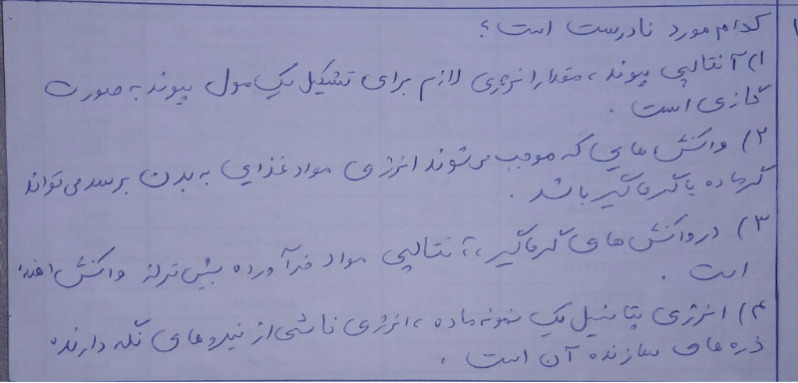 کدام مورد نادرست است؟
۱) آنتالپی پیوند، مقدار انرژی لازم برای تشکیل یک مول پیوند به صورت
گازی است.
۲) واکنش هایی که موجب می شوند انرژی مواد غذایی به بدن برسد می تواند
گرماده یا گرماگیر باشد.
۳) در واکنش های گرماگیر، آنتالپی مواد فرآورده بیش تر از واکنش دهنده
است.
۴) انرژی پتانسیل یک نمونه ماده، انرژی ناشی از نیروهای نگه دارنده
ذره های سازنده آن است.